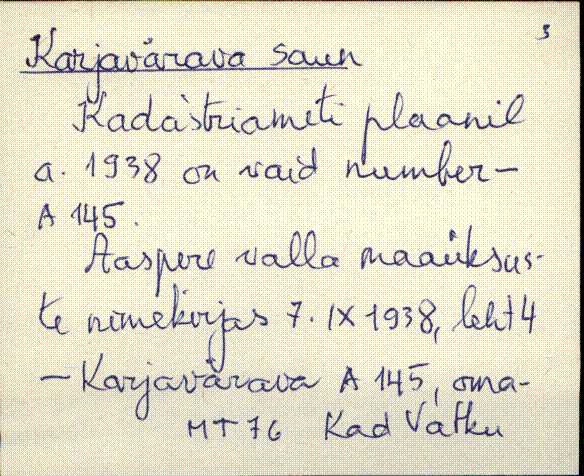 3
Karjavärava saun
Kadastriameti plaanil
a. 1938 on vaid number -
A 145.
Aaspere valla maaüksus-
te nimekirjas 7. IX 1938, leht 4
- Karjavärava A 145, oma-
MT 76 Kad Vatku